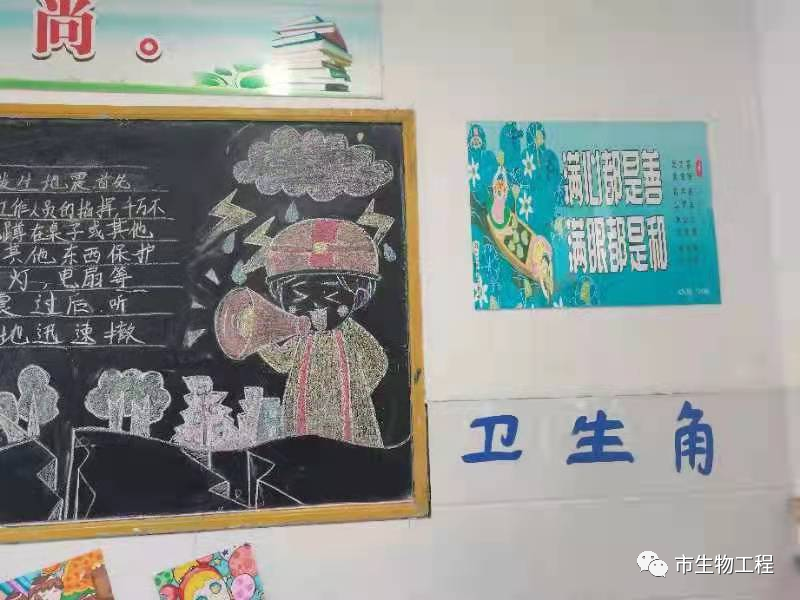 尚。
发生地震首先
工作人员的指挥,千万不
蹲在桌子或其他
其他东西保护
灯,电扇等
震过后,听
地迅速撤
满心都是善
满眼都是和
卫生角
市生物工程